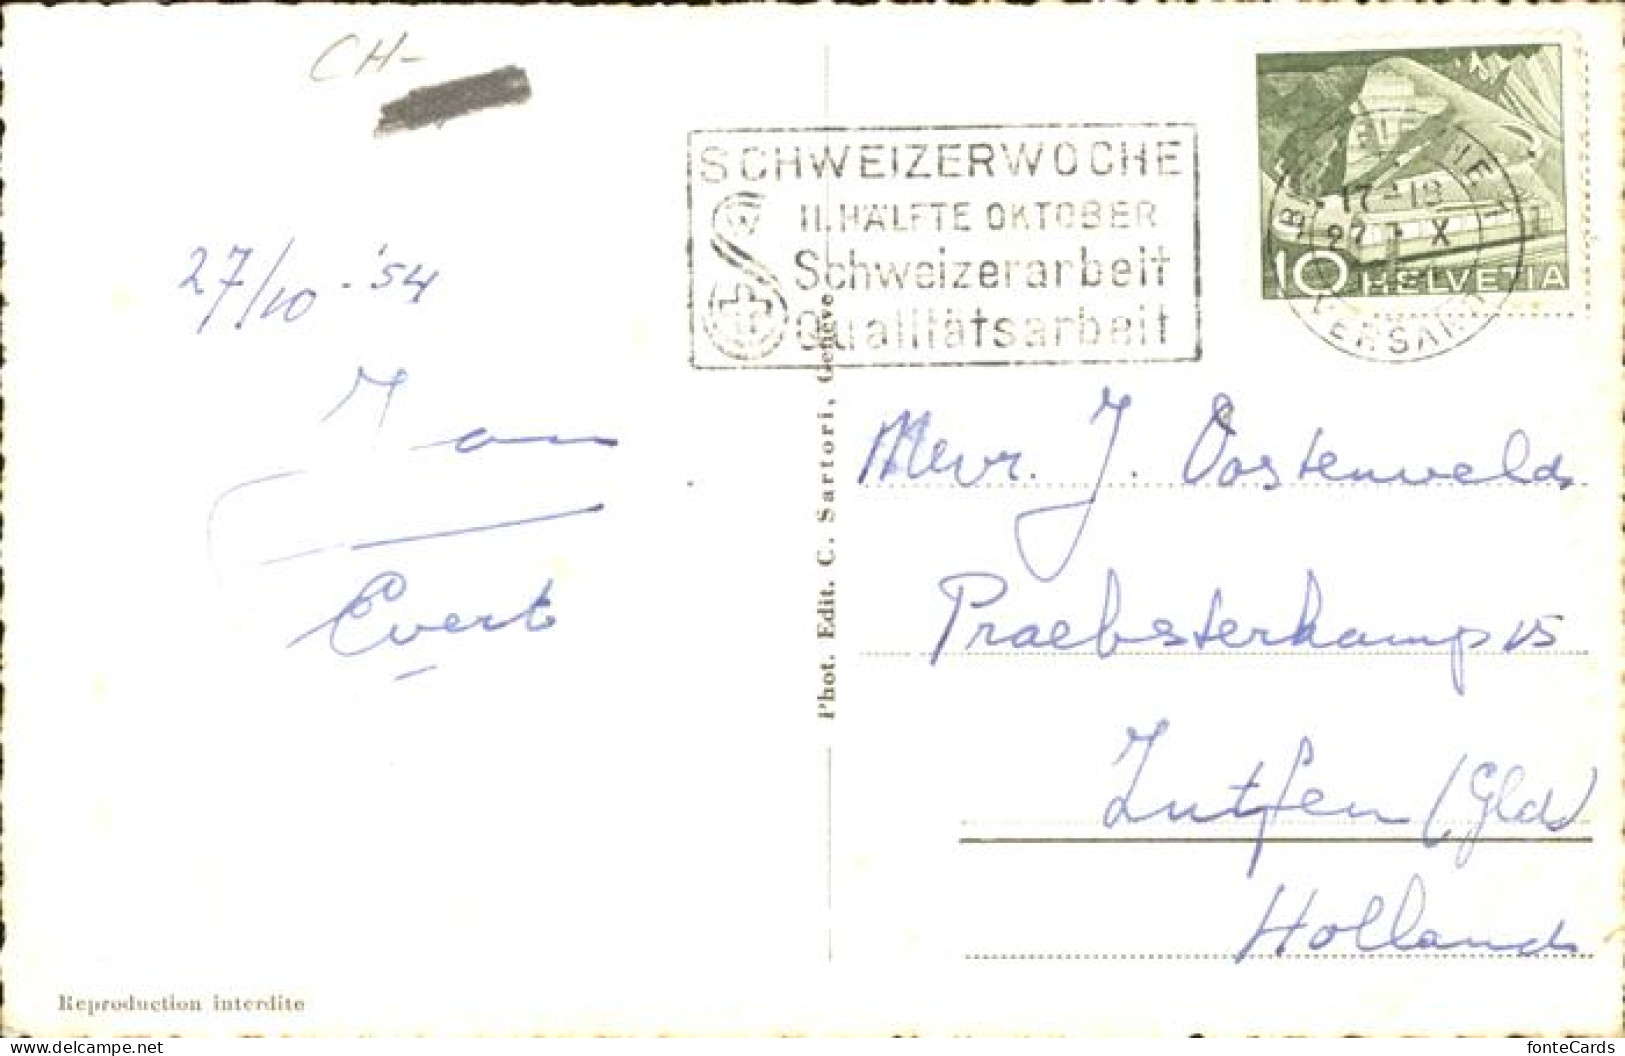 CH-
SCHWEIZERWOCHE
II. HÄLFTE OKTOBER
Schweizerarbeit
Qualitätsarbeit
17-18
27 X
VERSAND
10 HELVETIA
27/10 - '54
Evert
Phot. Edit. C. Sartori, Genève
Mevr. J. Oostenveld
Praebsterkamp 15
Zutfen (Gld)
Holland
Reproduction interdite
fonteCards